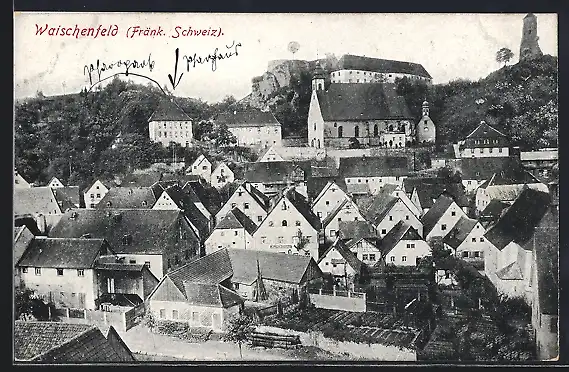 Waischenfeld (Fränk. Schweiz).
Pfarrpark Pfarrhaus